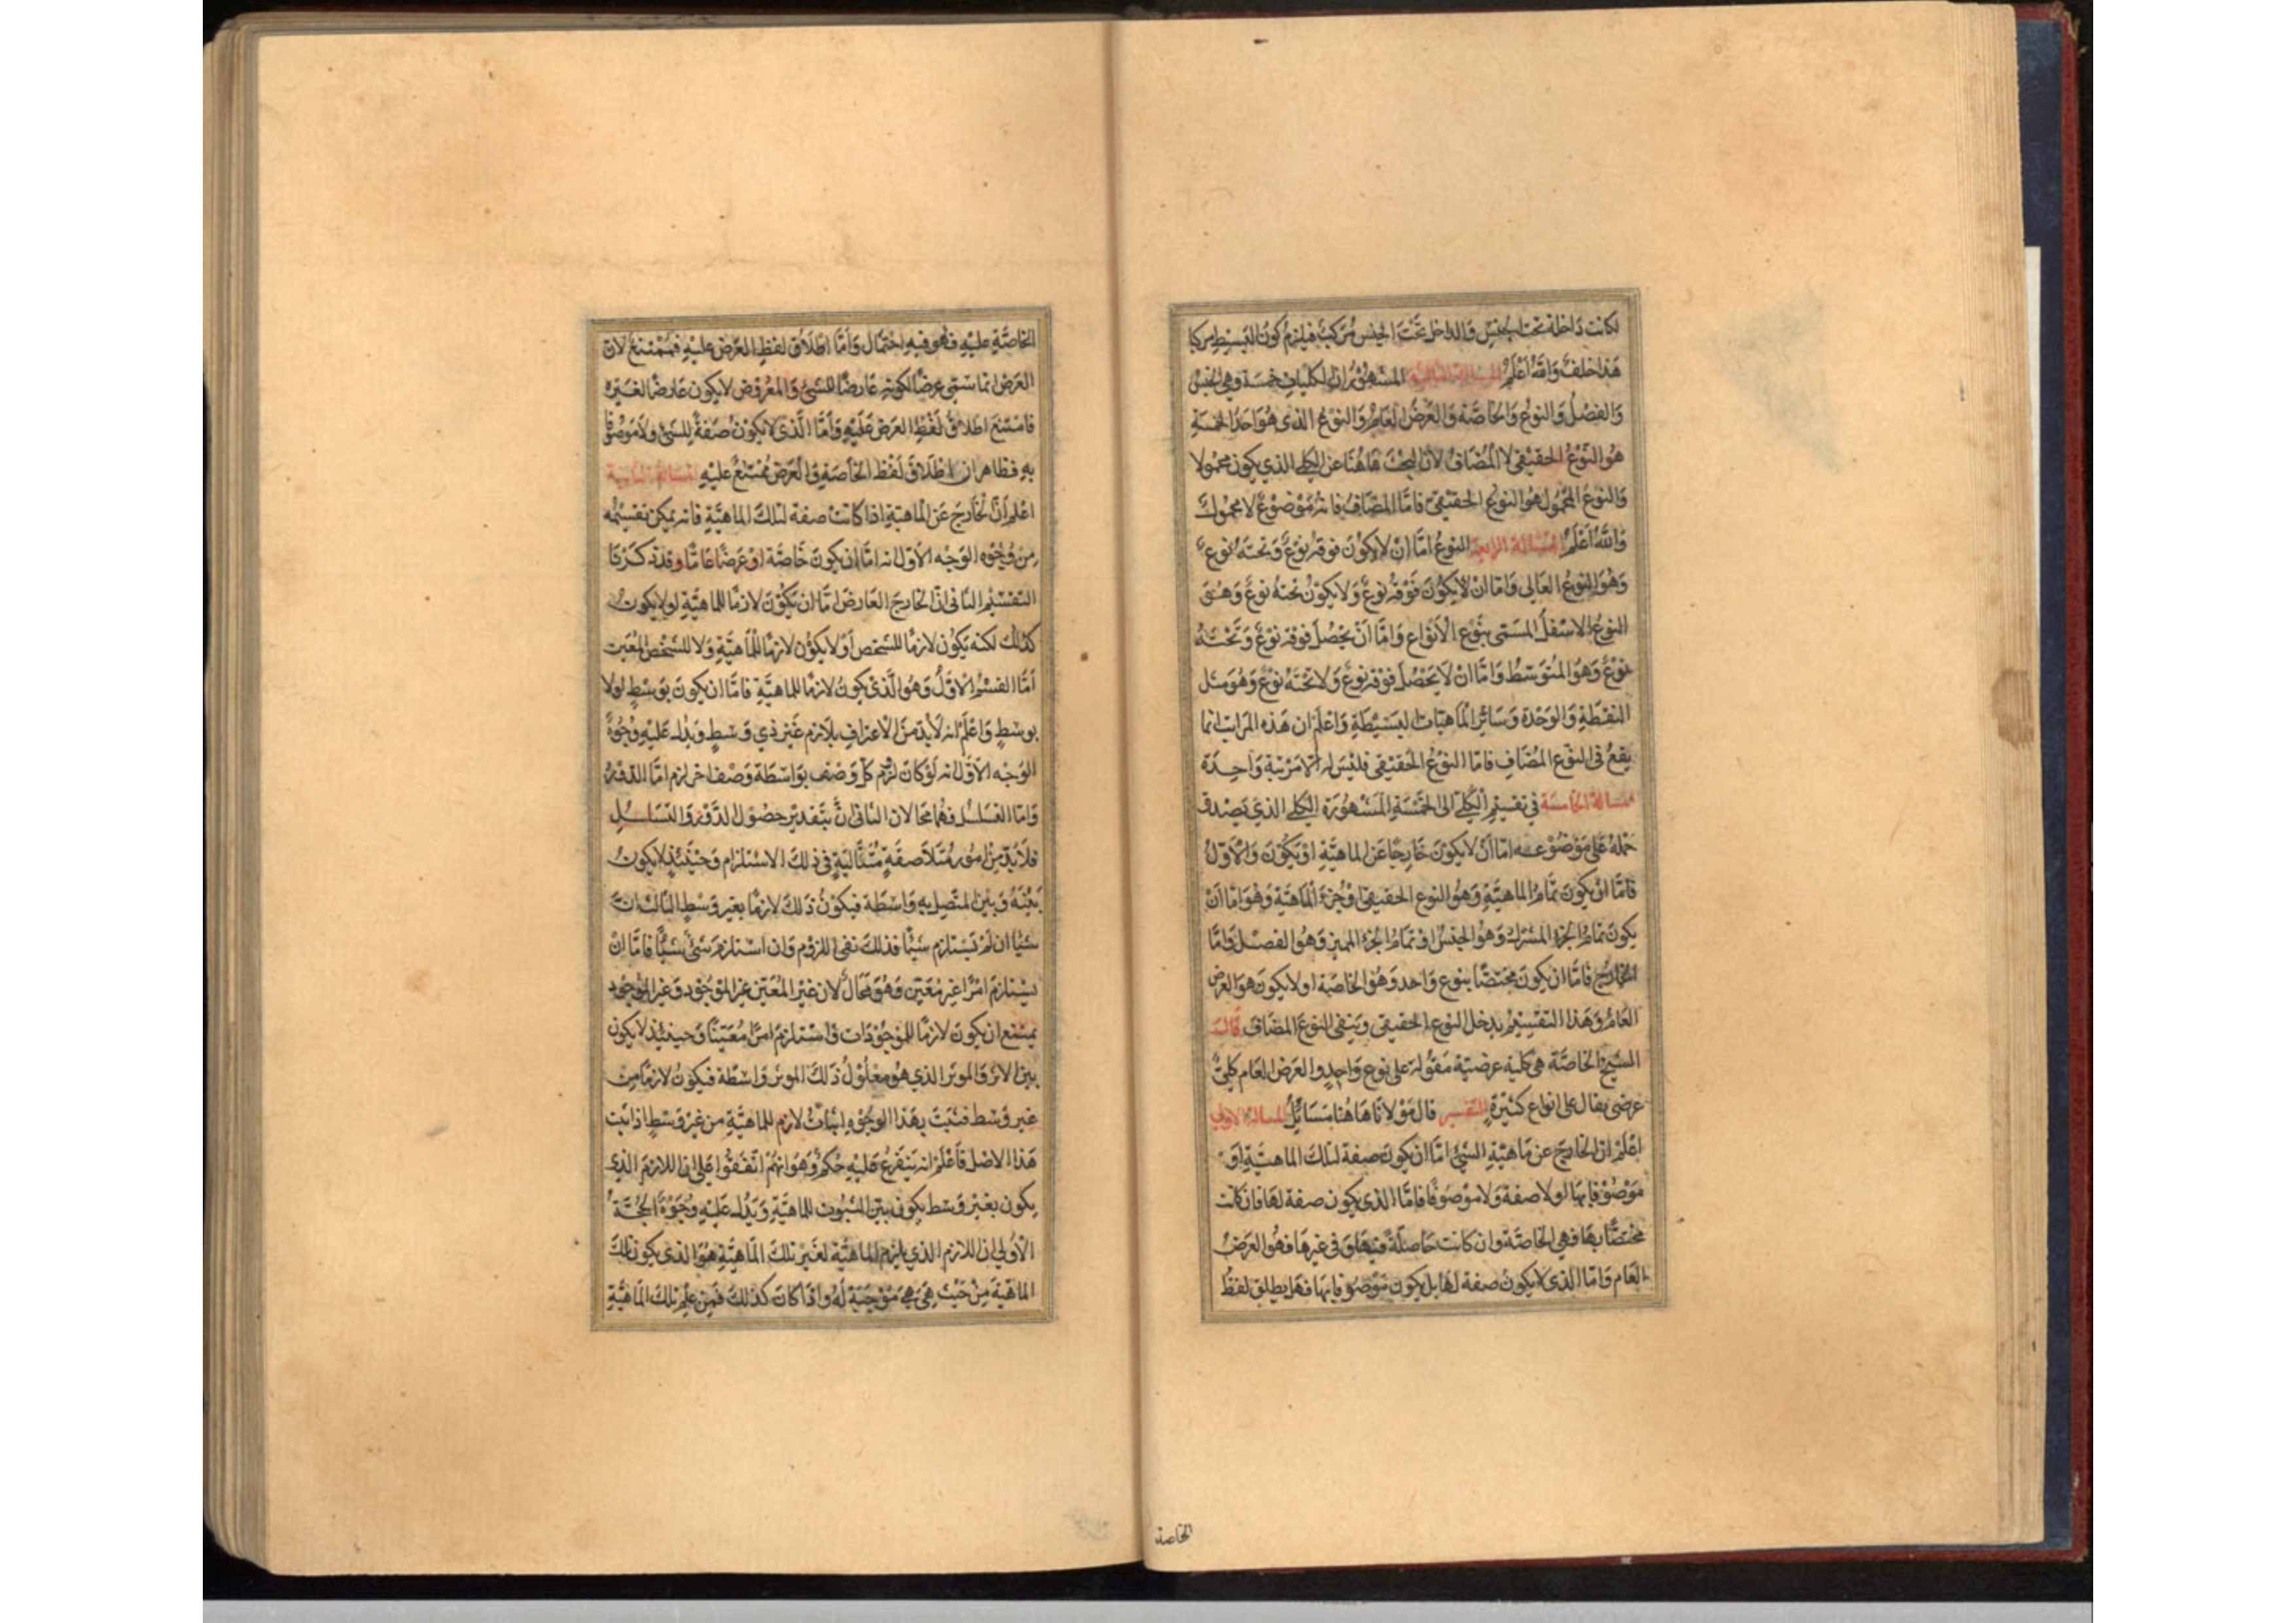 لكانت داخلة تحت الجنس والداخل تحت الجنس مركب فيلزم كون البسيط مركبا
هذا خلف والله أعلم المسألة الثالثة المشهور ان الكليات خمسة وهي الجنس
والفصل والنوع والخاصة والعرض العام والنوع الذي هو احد الخمسة
هو النوع الحقيقي لا المضاف لان البحث هاهنا عن الكلي الذي يكون محمولا
والنوع المحمول هو النوع الحقيقي فاما المضاف فانه موضوع لا محمول
والله أعلم المسألة الرابعة النوع اما ان لا يكون فوقه نوع وتحته نوع
وهو النوع العالي واما ان لا يكون فوقه نوع ولا يكون تحته نوع وهو
النوع الاسفل المسمى بنوع الانواع واما ان يحصل فوقه نوع وتحته
نوع وهو المتوسط واما ان لا يحصل فوقه نوع ولا تحته نوع وهو مثل
النقطة والوحدة وسائر الماهيات البسيطة واعلم ان هذه المراتب انما
يقع في النوع المضاف فاما النوع الحقيقي فليس له الا مرتبة واحدة
المسألة الخامسة في تقسيم الكلي الى الخمسة المشهورة الكلي الذي يصدق
حمله على موضوعه اما ان لا يكون خارجا عن الماهية او يكون والاول
فاما ان يكون تمام الماهية وهو النوع الحقيقي او جزء الماهية وهو اما ان
يكون تمام الجزء المشترك وهو الجنس او تمام الجزء المميز وهو الفصل واما
الخارج فاما ان يكون مختصا بنوع واحد وهو الخاصة او لا يكون هو العرض
العام وهذا التقسيم يدخل النوع الحقيقي وينفي النوع المضاف قال
الشيخ الخاصة هي كلية عرضية مقولة على نوع واحد والعرض العام كلي
عرضي يقال على انواع كثيرة التفسير قال مولانا هاهنا مسائل المسالة الاولى
اعلم ان الخارج عن ماهية الشيء اما ان يكون صفة لتلك الماهية او
موصوفا بها او لا صفة ولا موصوفا فاما الذي يكون صفة لها فان كانت
مختصا بها فهي الخاصة وان كانت حاصلة فيها وفي غيرها فهو العرض
العام واما الذي لا يكون صفة لها بل يكون موصوفا بها فهل يطلق لفظ
الخاصة
الخاصة عليه فهو فيه احتمال واما اطلاق لفظ العرض عليه فممتنع لان
العرض انما سمي عرضا لكونه عارضا للشيء والمعروض لا يكون عارضا لغيره
فامتنع اطلاق لفظ العرض عليه واما الذي لا يكون صفة للشيء ولا موصوفا
به فظاهر ان اطلاق لفظ الخاصة والعرض ممتنع عليه المسألة الثانية
اعلم ان الخارج عن الماهية اذا كانت صفة لتلك الماهية فانه يمكن تقسيمه
من وجوه الوجه الاول انه اما ان يكون خاصة او عرضا عاما وقد ذكرنا
التقسيم الثاني ان الخارج العارض اما ان يكون لازما للماهية او لا يكون
كذلك لكنه يكون لازما للشخص او لا يكون لازما للماهية ولا للشخص المعين
اما القسم الاول وهو الذي يكون لازما للماهية فاما ان يكون بوسط او لا
بوسط واعلم انه لا بد من الاعتراف بلازم غير ذي وسط ويدل عليه وجوه
الوجه الاول انه لو كان لزم كل وصف بواسطة وصف اخر لزم اما الدور
واما التسلسل فهما محالان الثاني ان بتقدير حصول الدور والتسلسل
فلا بد من امور متلاصقة متتالية في ذلك الاستلزام وحينئذ لا يكون
بينه وبين المتصل به واسطة فيكون ذلك لازما بغير وسط الثالث ان
شيئا ان لم يستلزم شيئا فذلك نفي للزوم وان استلزم شيء شيئا فاما ان
يستلزم امرا غير معين وهو محال لان غير المعين غير الموجود وغير الموجود
يمتنع ان يكون لازما للموجودات واستلزم امرا معينا وحينئذ لا يكون
بين الاثر والموثر الذي هو معلول ذلك الموثر واسطة فيكون لازما من
غير وسط فثبت بهذا الوجوه اثبات لازم للماهية من غير وسط اذا ثبت
هذا الاصل فاعلم انه يتفرع عليه حكم وهو انهم اتفقوا على ان اللازم الذي
يكون بغير وسط يكون بين الثبوت للماهية ويدل عليه وجوه الحجة
الاولى ان اللازم الذي يلزم الماهية لغير تلك الماهية هو الذي يكون تلك
الماهية من حيث هي هي موجبة له واذا كان كذلك فمن علم تلك الماهية